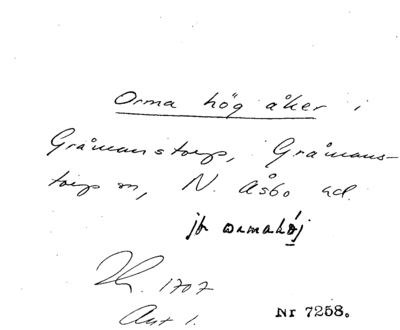 Orma hög åker i
Gråmanstorp, Gråmans-
torps sn, N. Åsbo hd.
jfr ormahöj
1707
Akt 1.
Nr 7258.